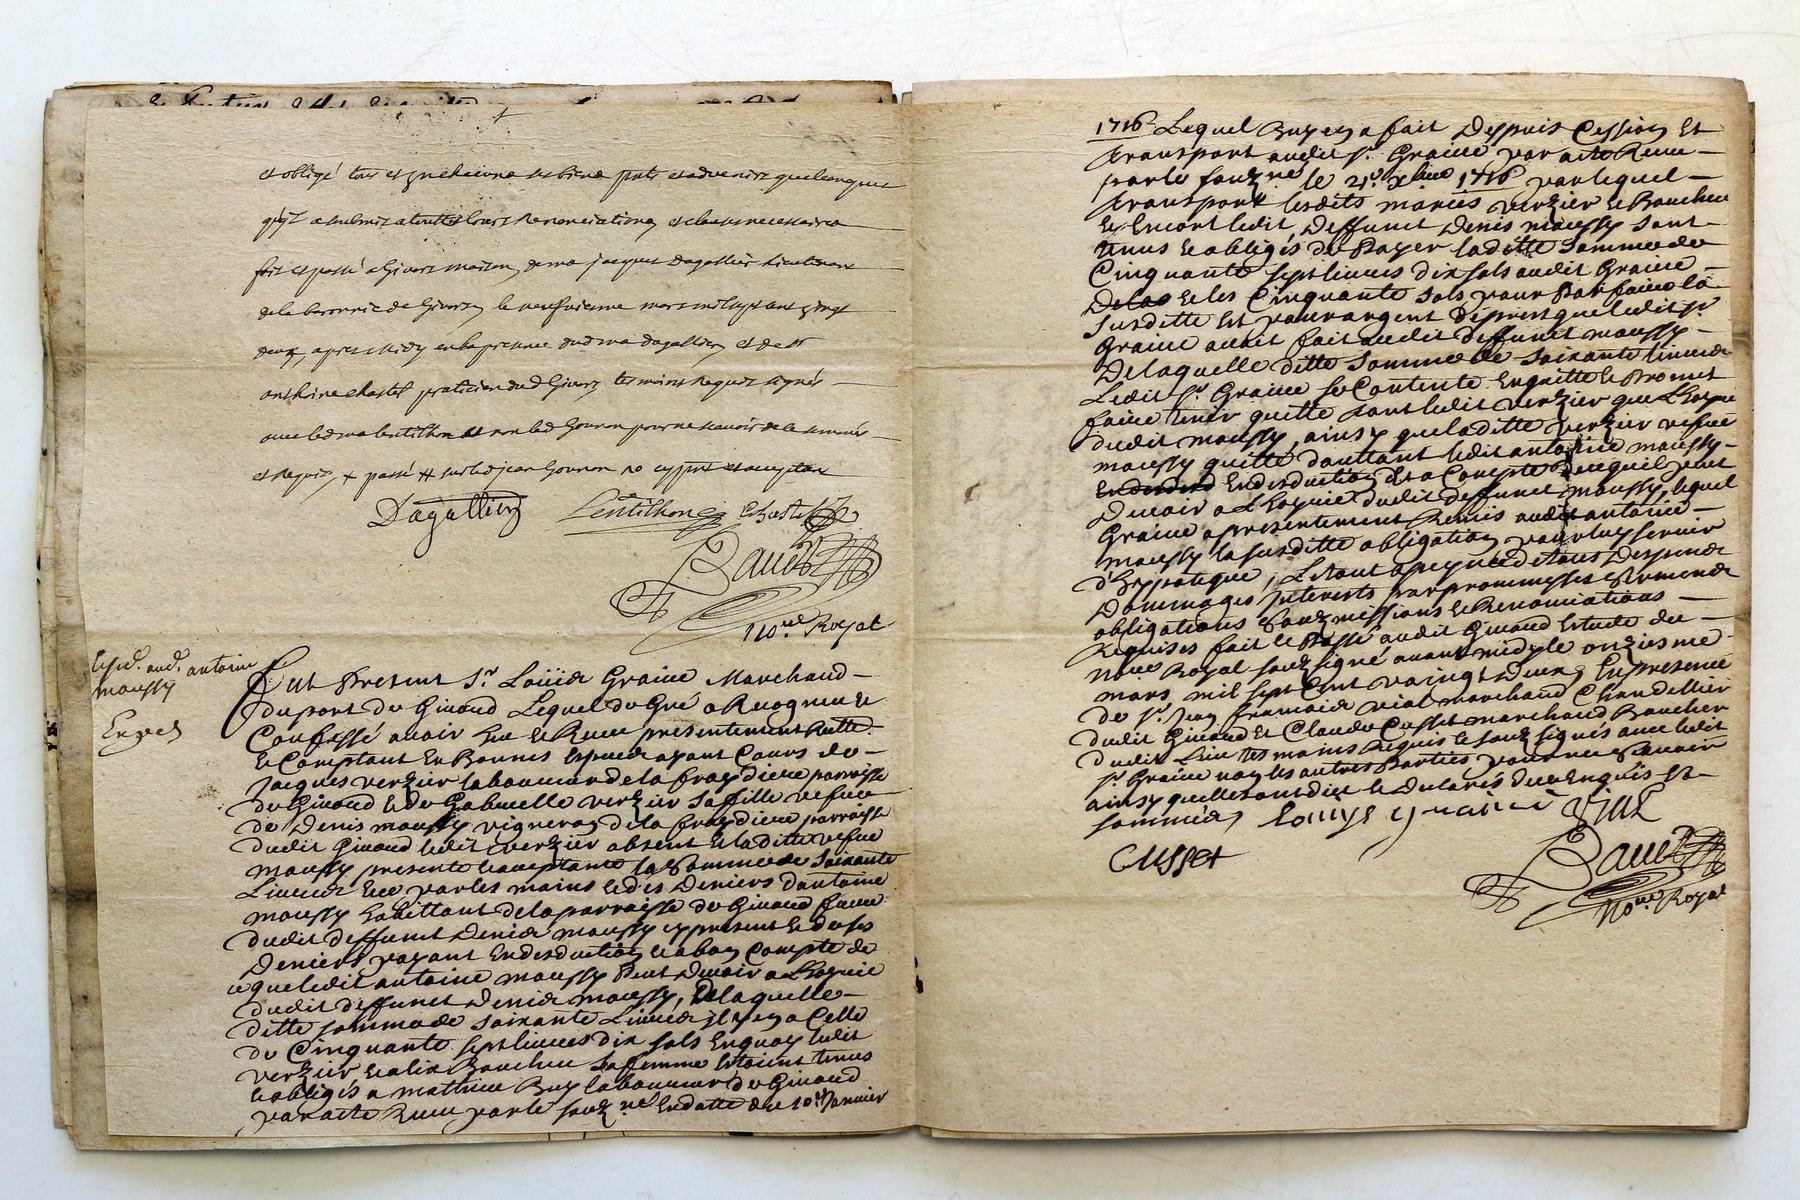 et obligé tous et un chacuns ses biens pnts et advenirs quelconques
qu'il a submis a toutes cours Renonciations et clauses necessaires
fait et passé a Givors maison de me jacques Dagallier Lieutenant
de la baronnie de Givors, le neufvieme mars mil sept cent vingt
deux, apres midy en la presence dud me dagallier, et de sr
anthoine chastel praticien dud Givors tesmoins Requis signés
avec led me lentilhon et non led Gouron pour ne scavoir de ce sommés
et Requis, x passé # sur led jean Gouron no
Dagallier Lentilhon Chastel
Bauet
no.re Royal
audt antoine
moussy
Exped
Fut Present Sr Loüis Graine Marchand
du port de Givord Lequel de Gré a Recogneu et
Confessé avoir Eu et Receu presentement
et Comptant En Bonnes Especes ayant Cours de
Jacques verzier laboureur de la fraydiere parroisse
de Givord et de Gabrielle verzier sa fille vefve
de Denis moussy vigneron de la fraydiere parroisse
dudit Givord ledit verzier absent et laditte vefve
moussy presente et acceptante la Somme de Soixante
Livres et ce par les mains et des Deniers d'antoine
moussy habittant de la parroisse de Givord frere
dudit deffunct Denis moussy cy present et de ses
Deniers payant En desduction et a bon Compte de
ce que ledit antoine moussy Peut Devoir a L'hoyrie
dudit deffunct Denis moussy, De laquelle
ditte somme de soixante Livres il y en a Celle
de Cinquante sept livres dix sols En quoy ledit
verzier et alix Boucheu sa femme Estoient tenus
et obligés a mathieu Buy laboureur de Givord
par acte Receu par le souz.né En datte du 10e Janvier
1716 Lequel Buy en a fait Despuis Cession Et
transport audit sr Graine par acte Receu
par le souz.né le 21e xbre 1716 par lequel
transport lesdits mariés verzier et Boucheu
et Encor ledit Deffunct Denis moussy sont
tenus et obligés de Payer laditte somme de
Cinquante sept livres dix sols audit Graine
et les Cinquante sols pour Parfaire la
susditte Est pour argent de prest que ledit sr
Graine avoit fait audit deffunct moussy
De laquelle ditte somme de soixante livres
Ledit sr Graine se Contente En quitte et Promet
faire tenir quitte tant ledit verzier que L'hoyrie
dudit moussy, ainsy que laditte verzier vefve
moussy quitte d'autant ledit antoine moussy
En desduction Et a Compte De ce qu'il peut
Devoir a L'hoyrie dudit deffunct moussy, lequel
Graine a presentement Remis audit antoine
moussy la susditte obligation pour luy servir
d'hyppoteque, Le tout a peyne de tous Despends
Dommages Interests par promesses serments
obligations souzmissions et Renonciations
Requises fait et Passé audit Givord Estude du
no.re Royal souzsigné avant midy le onziesme
mars mil sept Cent vaingt Deux, En presence
de sr Jean francois vial marchand Chandellier
dudit Givord Et Claude Cusset marchand Boucher
dudit Lieu tesmoins Requis et souzsignés avec ledit
sr Graine non les autres Parties pour ne Scavoir
ainsy qu'elles ont dit et declarés De ce Enquis Et
sommées louys grainé Vial
Cusset
Bauet
no.re Royal